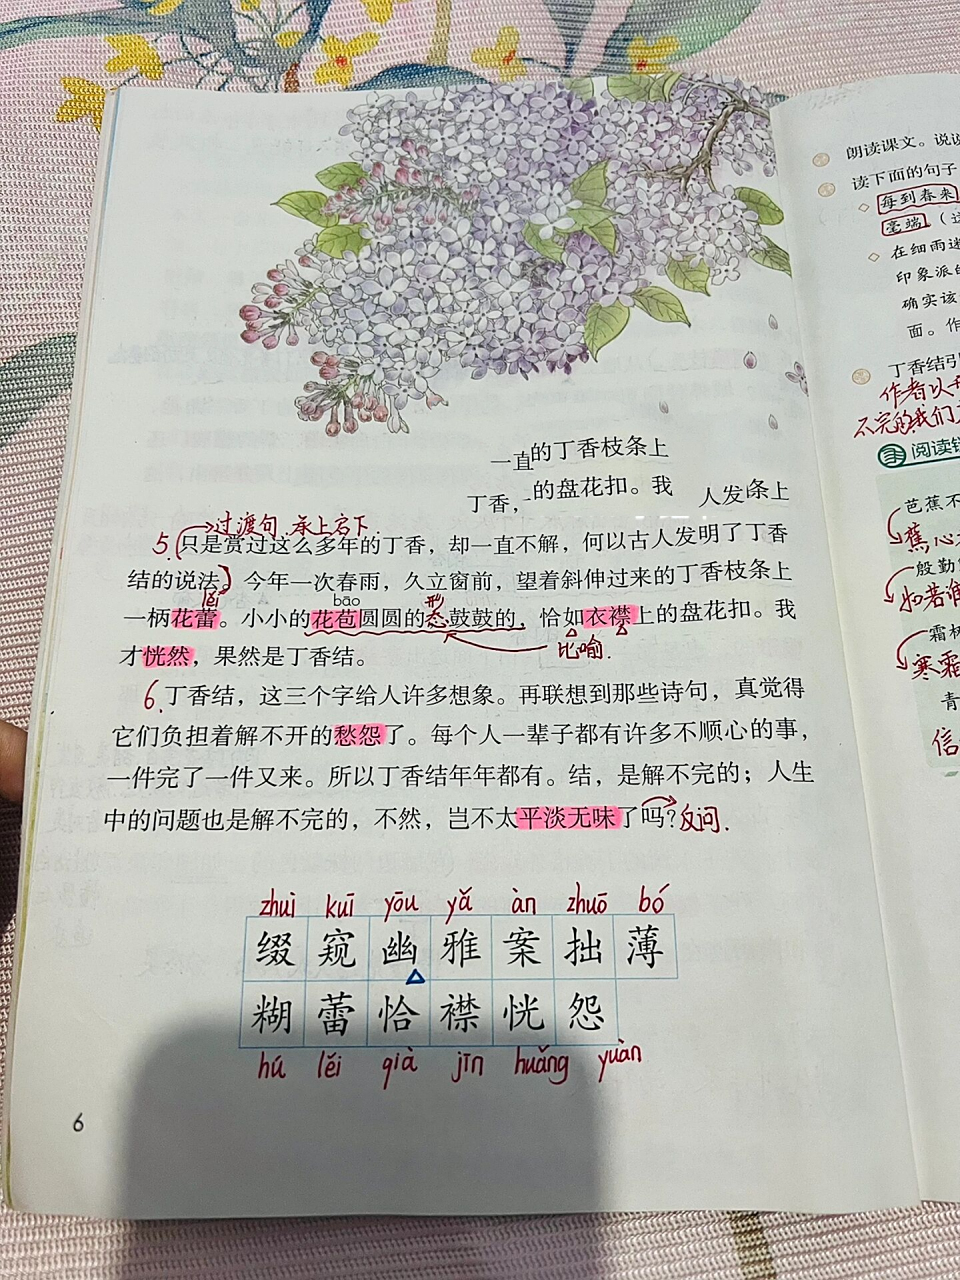 一直的丁香枝条上
丁香，的盘花扣。我 人发条上
过渡句 承上启下
5.(只是赏过这么多年的丁香，却一直不解，何以古人发明了丁香
结的说法)今年一次春雨，久立窗前，望着斜伸过来的丁香枝条上
lěi bāo 形态
一柄花蕾。小小的花苞圆圆的 鼓鼓的，恰如衣襟上的盘花扣。我
才恍然，果然是丁香结。
比喻.
6.丁香结，这三个字给人许多想象。再联想到那些诗句，真觉得
它们负担着解不开的愁怨了。每个人一辈子都有许多不顺心的事，
一件完了一件又来。所以丁香结年年都有。结，是解不完的；人生
中的问题也是解不完的，不然，岂不太平淡无味了吗？反问.
zhuì kuī yōu yǎ àn zhuō bó
缀 窥 幽 雅 案 拙 薄
糊 蕾 恰 襟 恍 怨
hú lěi qià jīn huǎng yuàn
6
朗读课文。说说
读下面的句子
每到春来
毫端
在细雨迷
印象派的
确实该
面。作
丁香结引
作者以
不完的我们
阅读链
芭蕉不
蕉心
殷勤
如若谁
霜树
寒霜
青
信